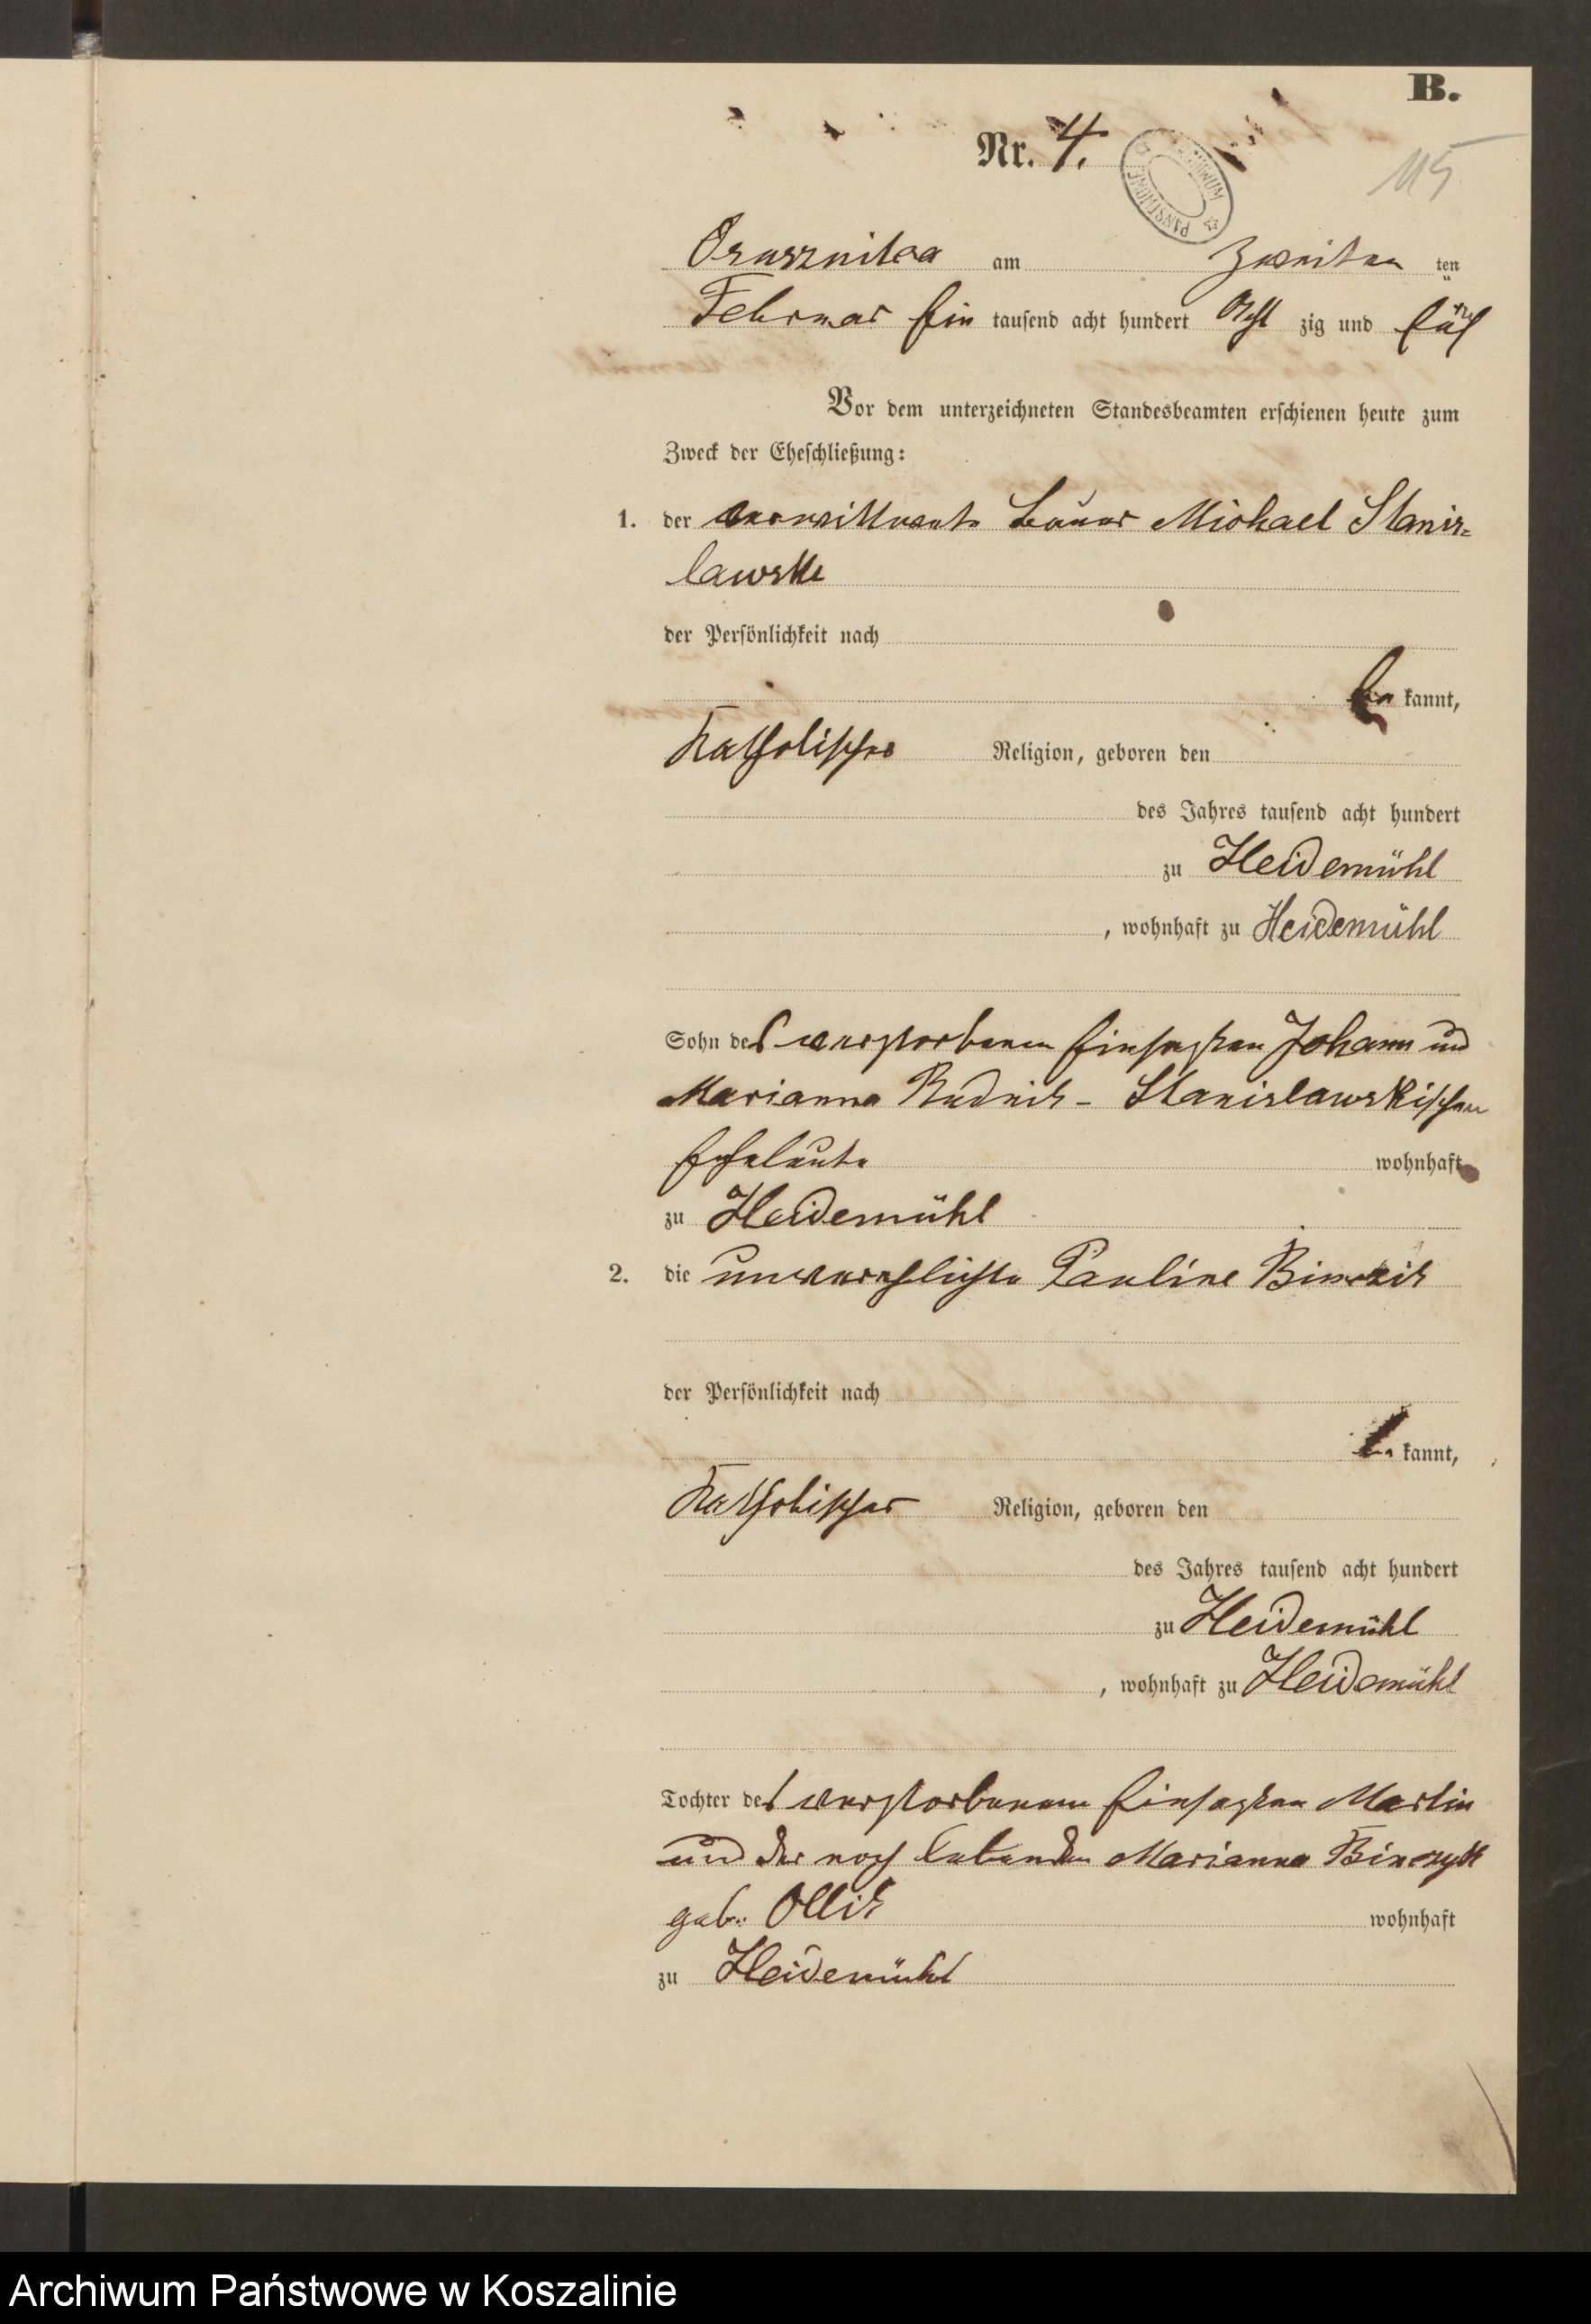 B.
Nr. 4.
115
Osusznitza am Zweiten ten
Februar Ein tausend acht hundert Acht zig und
Vor dem unterzeichneten Standesbeamten erschienen heute zum
Zweck der Eheschließung:
1. der verwittwete Bauer Michael Stanis=
lawski
der Persönlichkeit nach
be kannt,
Katholischer Religion, geboren den
des Jahres tausend acht hundert
zu Heidemühl
, wohnhaft zu Heidemühl
Sohn der verstorbenen Einsassen Johann und
Marianna Rudnik - Stanislawskischen
Eheleute wohnhaft
zu Heidemühl
2. die unverehelichte Pauline Binczik
der Persönlichkeit nach
be kannt,
Katholischer Religion, geboren den
des Jahres tausend acht hundert
zu Heidemühl
, wohnhaft zu Heidemühl
Tochter des verstorbenen Einsassen Martin
und der noch lebenden Marianna Binczyk
geb. Ollik wohnhaft
zu Heidemühl
Archiwum Państwowe w Koszalinie